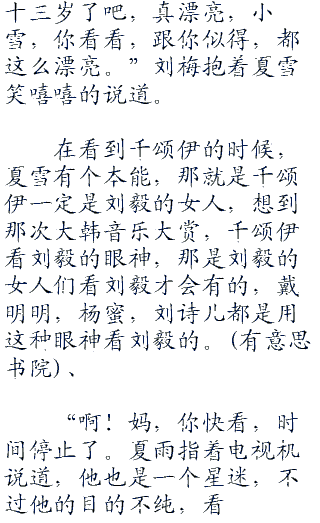 十三岁了吧，真漂亮，小
雪，你看看，跟你似得，都
这么漂亮。”刘梅抱着夏雪
笑嘻嘻的说道。
在看到千颂伊的时候，
夏雪有个本能，那就是千颂
伊一定是刘毅的女人，想到
那次大韩音乐大赏，千颂伊
看刘毅的眼神，那是刘毅的
女人们看刘毅才会有的，戴
明明，杨蜜，刘诗儿都是用
这种眼神看刘毅的。(有意思
书院)、
“啊！妈，你快看，时
间停止了。夏雨指着电视机
说道，他也是一个星迷，不
过他的目的不纯，看